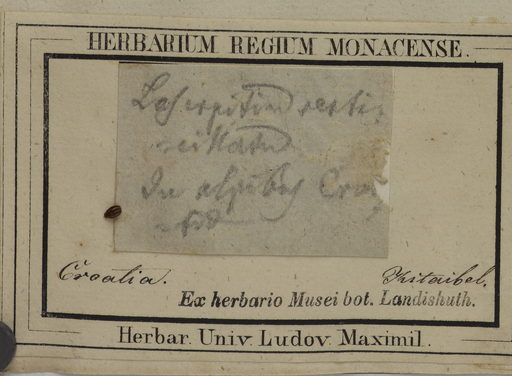 HERBARIUM REGIUM MONACENSE.
Laserpitium verti-
cillatum
In alpibus Croa-
tiae
Croatia. Kitaibel.
Ex herbario Musei bot. Landishuth.
Herbar. Univ. Ludov. Maximil.